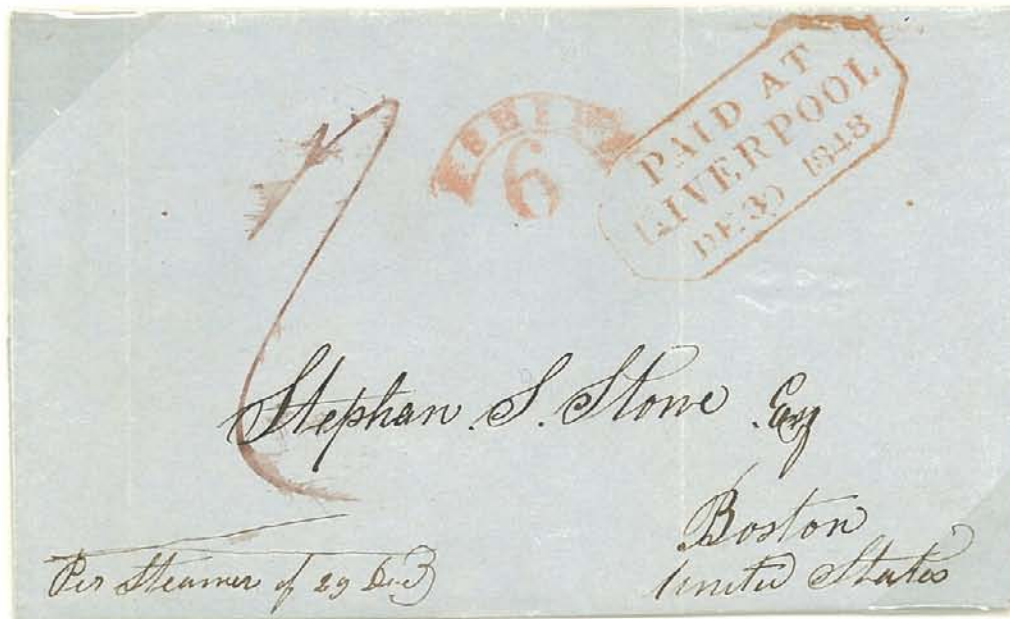 6
PAID AT
LIVERPOOL
DE 30 1848
Stephan. S. Stowe. Esq
Boston
United States
Per Steamer of 29 Dec